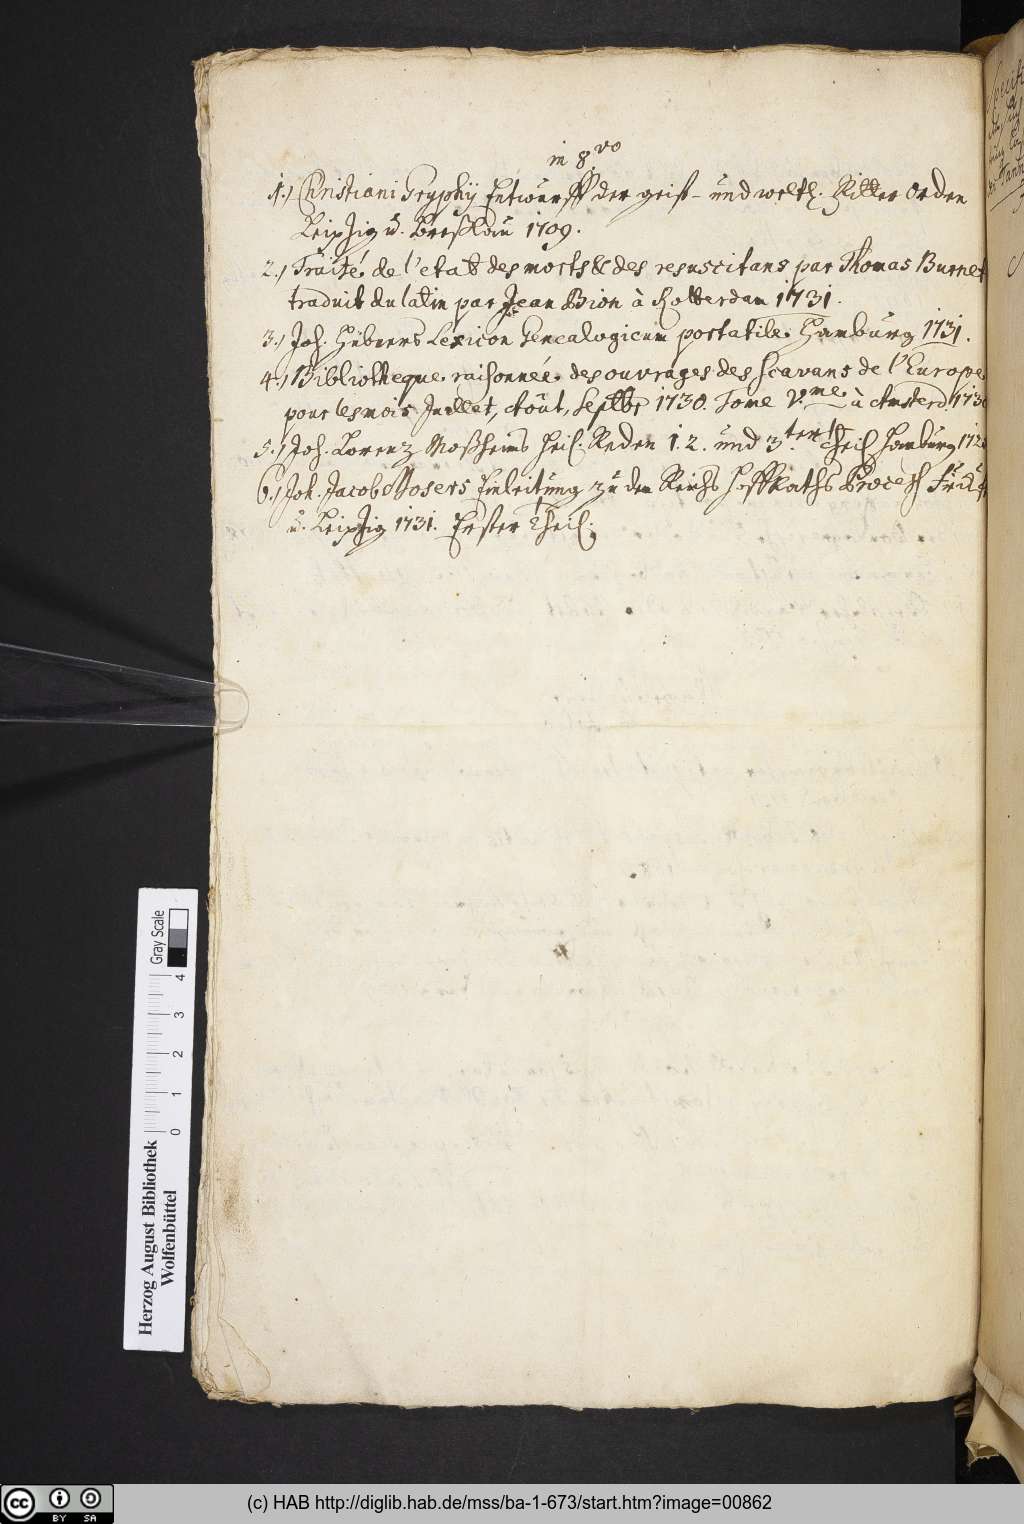 in 8.vo
1.) Christiani Gryphij Entwurff der geist- und weltl. Ritter Orden
Leipzig u. Breßlau 1709.
2.) Traité de l'etat des morts & des resuscitans par Thomas Burnet
traduit du latin par Jean Bion à Rotterdam 1731.
3.) Joh. Hübners Lexicon Genealogicum portatile. Hamburg 1731.
4.) Bibliotheque raisonnée des ouvrages des scavans de l'Europe
pour les mois Juillet, Aôut, Septbr 1730. Tome V.me à Amsterd. 1730
5.) Joh. Lorenz Moßheims Heil. Reden 1. 2. und 3.ter Theil Hamburg
6.) Joh. Jacob Mosers Einleitung zu den Reichs Hoff Raths Proceß
u. Leipzig 1731. Erster Theil.
Gray Scale
0 1 2 3 4
Herzog August Bibliothek
Wolfenbüttel
cc BY SA
(c) HAB http://diglib.hab.de/mss/ba-1-673/start.htm?image=00862